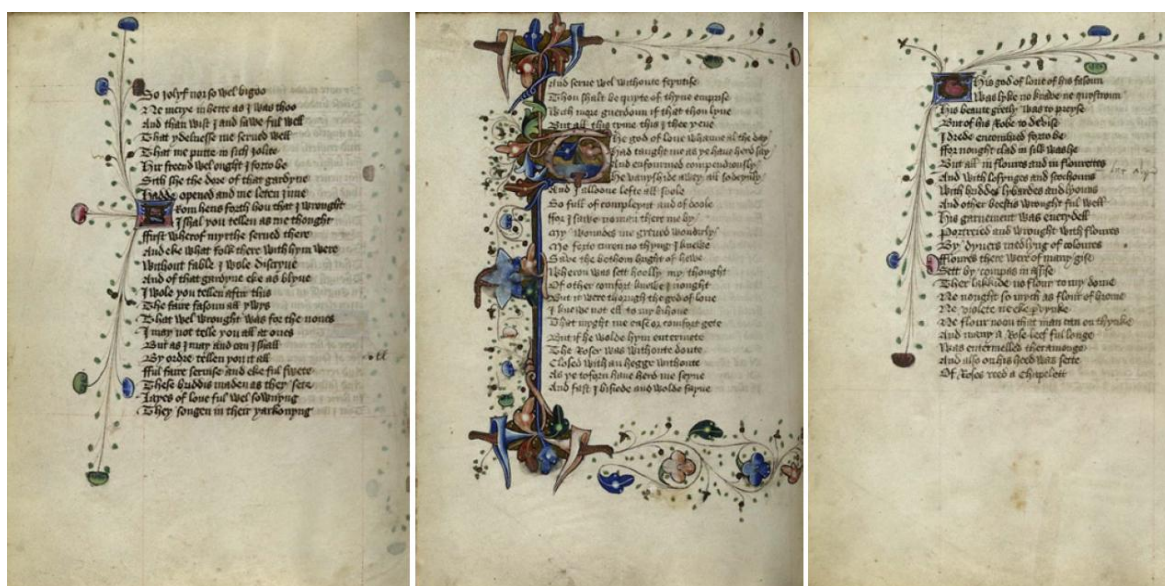 So jolyf nor so wel bigoo
Ne merye in herte as I was thoo
And than wist I and sawe ful well
That ydelnesse me serued well
That me putte in sich jolite
Hir freend wel ought I forto be
Sith she the dore of that gardyne
Hadde opened and me leten inne
From hens forth hou that I wrought
I shal you tellen as me thought
ffirst wherof myrthe serued there
And eke what folk there with hym were
Without fable I wole discryue
And of that gardyne eke as blyue
I wole you tellen aftir this
The faire fasoun all ywys
That wel wrought was for the nones
I may not telle you all at ones
But as I may and can I shall
By ordre tellen you it all
fful faire seruise and eke ful swete
These briddis maden as they sete
Layes of loue ful wel sownyng
They songen in their yarkonyng
And serue wel withoute feyntise
Thou shalt be quyte of thyne emprise
With more guerdoun if that thou lyue
But all this tyme this I thee yeue
The god of loue whanne al the day
Had taught me as ye haue herd say
And enfourmed compendiously
He vanyshide awey all sodeynly
And I alloone lefte all soole
So full of compleynt and of doole
ffor I sawe no man there me by
My woundes me greued wondirly
Me forto curen no thyng I knewe
Saue the bothom bright of hewe
Wheron was sett hoolly my thought
Of other comfort knewe I nought
But it were thorugh the god of loue
I knewe not ell to my bihoue
That myght me ease or comfort gete
But if he wolde hym entermete
The Roser was withoute doute
Closed with an hegge withoute
As ye toforn haue herd me seyne
And fast I bisiede and wolde fayne
This god of loue of his fasoun
Was lyke no knaue ne quystroun
His beaute gretly was to preyse
But of his Robe to deuise
I drede encombred forto be
ffor nought clad in silk was he
But all in floures and in flourettes
And with losynges and scochouns
With briddes lybardes and lyouns
And other beestis wrought ful well
His garnement was euerydell
Portreied and wrought with floures
By dyuers medlyng of coloures
Floures there were of many gise
Sett by compas in assise
Ther lakkide no flour to my dome
Ne nought so mych as flour of brome
Ne violete ne eke pervynke
Ne flour noon that man can on thynke
And many a Rose leef ful longe
Was entermelled theramonge
And also on his heed was sette
Of Roses reed a chapelett